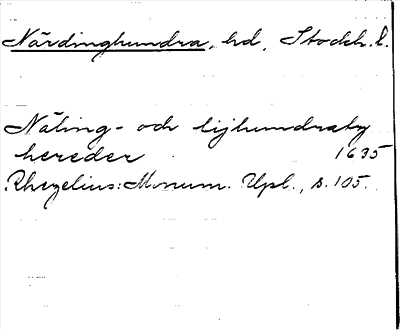 Närdinghundra, hd, Stockh. l.
Näling- och lijhundraby
hereder 1635
Rhezelius: Monum. Upl., s. 105.